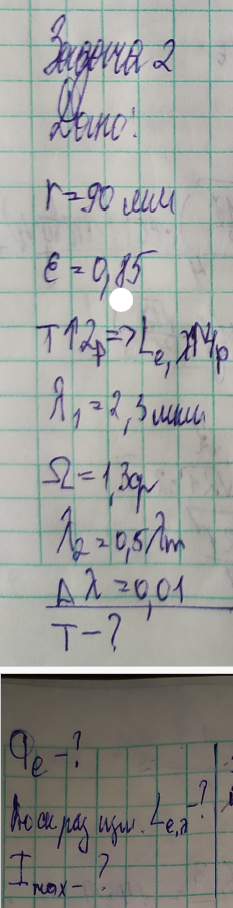 Задача 2
Дано:
r = 90 мм
ε = 0,85
T↑2р => Le, λ↑4р
λ₁ = 2,3 мкм
Ω = 1,3 ср
λ₂ = 0,5 λm
Δλ = 0,01
T - ?
Фe - ?
Во ск раз изм. Le,λ - ?
Imax - ?